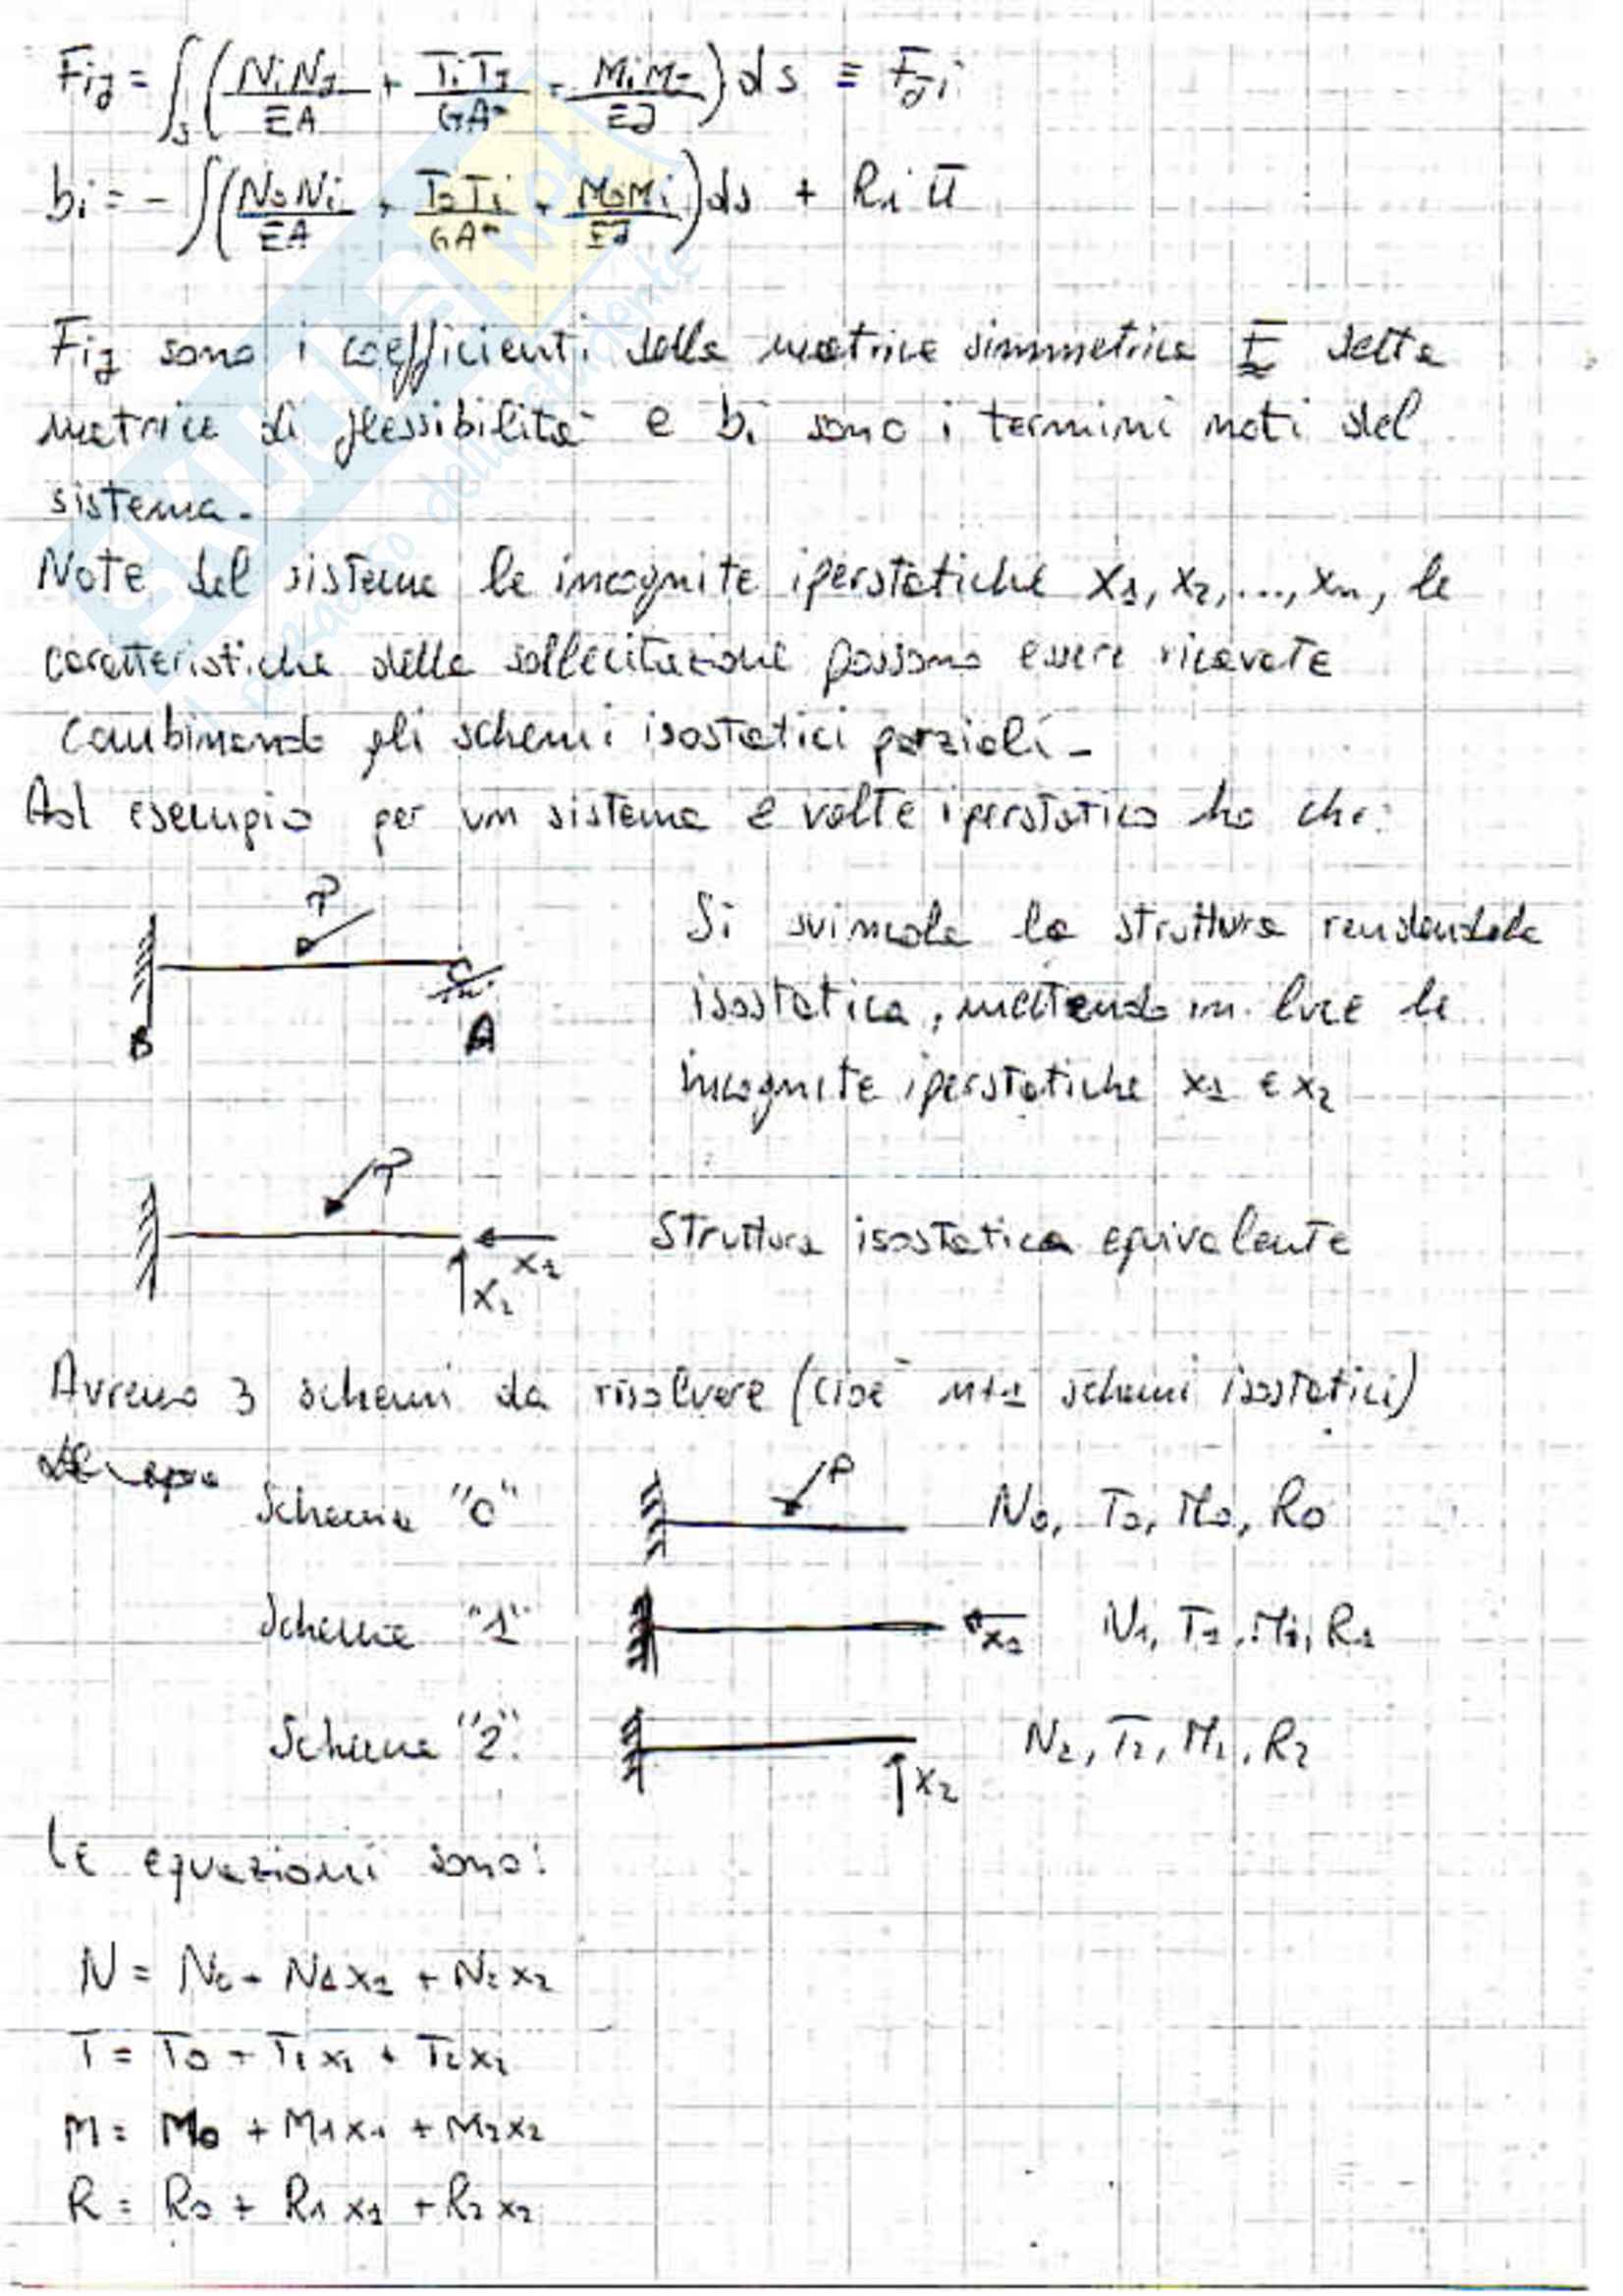 Fij = ∫s (NiNj/EA + TiTj/GA* + MiMj/EJ) ds ≡ Fji
bi = - ∫(N0Ni/EA + T0Ti/GA* + M0Mi/EJ) ds + Ri ū
Fij sono i coefficienti della matrice simmetrica F detta
matrice di flessibilità e bi sono i termini noti del
sistema.
Note del sistema le incognite iperstatiche x1, x2, ..., xn, le
caratteristiche della sollecitazione possono essere ricavate
combinando gli schemi isostatici parziali-
Ad esempio per un sistema 2 volte iperstatico ho che:
P
B
A
Si svincola la struttura rendendola
isostatica, mettendo in luce le
incognite iperstatiche x1 e x2
P
x1
x2
Struttura isostatica equivalente
Avremo 3 schemi da risolvere (cioè n+1 schemi isostatici)
Schema "0" P N0, T0, M0, R0
Schema "1" x1 N1, T1, M1, R1
Schema "2" x2 N2, T2, M2, R2
Le equazioni sono:
N = N0 + N1x1 + N2x2
T = T0 + T1x1 + T2x2
M = M0 + M1x1 + M2x2
R = R0 + R1x1 + R2x2
SKUOLA.net